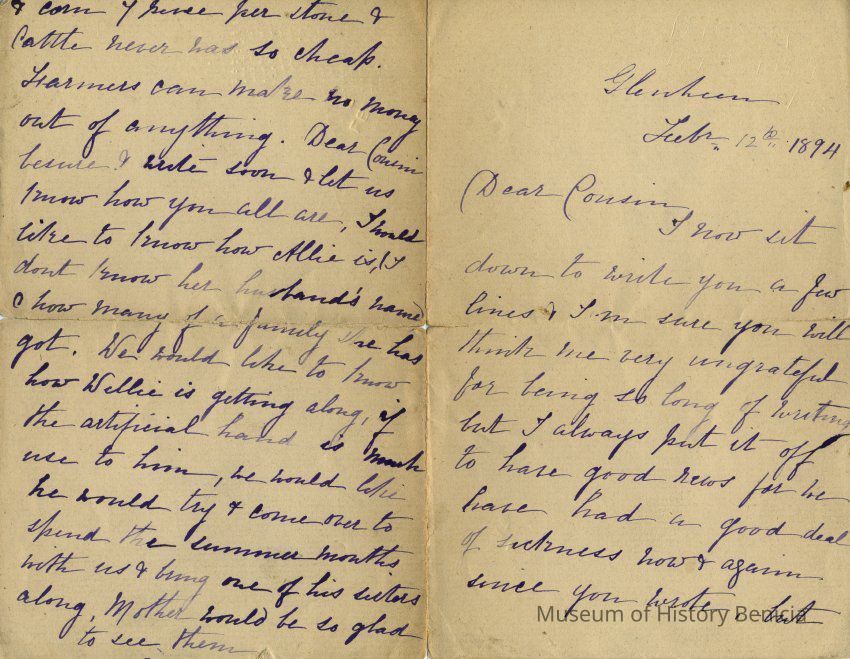 Glenheen
Febr. 12th 1894
Dear Cousin
I now sit
down to write you a few
lines & I'm sure you will
think me very ungrateful
for being so long of writing
but I always put it off
to have good news for we
have had a good deal
of sickness now & again
since you wrote, but
& corn 7 pence per stone &
Cattle never was so cheap.
Farmers can make no money
out of anything. Dear Cousin
besure & write soon & let us
know how you all are, I would
like to know how Allie is, (I
dont know her husband's name)
& how many of a family she has
got. We would like to know
how Willie is getting along, if
the artificial hand is much
use to him, we would like
he would try & come over to
spend the summer months
with us & bring one of his sisters
along, Mother would be so glad
to see them
Museum of History Benicia